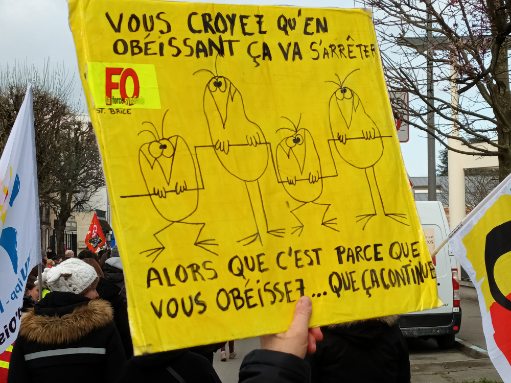 VOUS CROYEZ QU'EN
OBÉISSANT ÇA VA S'ARRÊTER
FO
ST. BRICE
ALORS QUE C'EST PARCE QUE
VOUS OBÉISSEZ... QUE ÇA CONTINUE